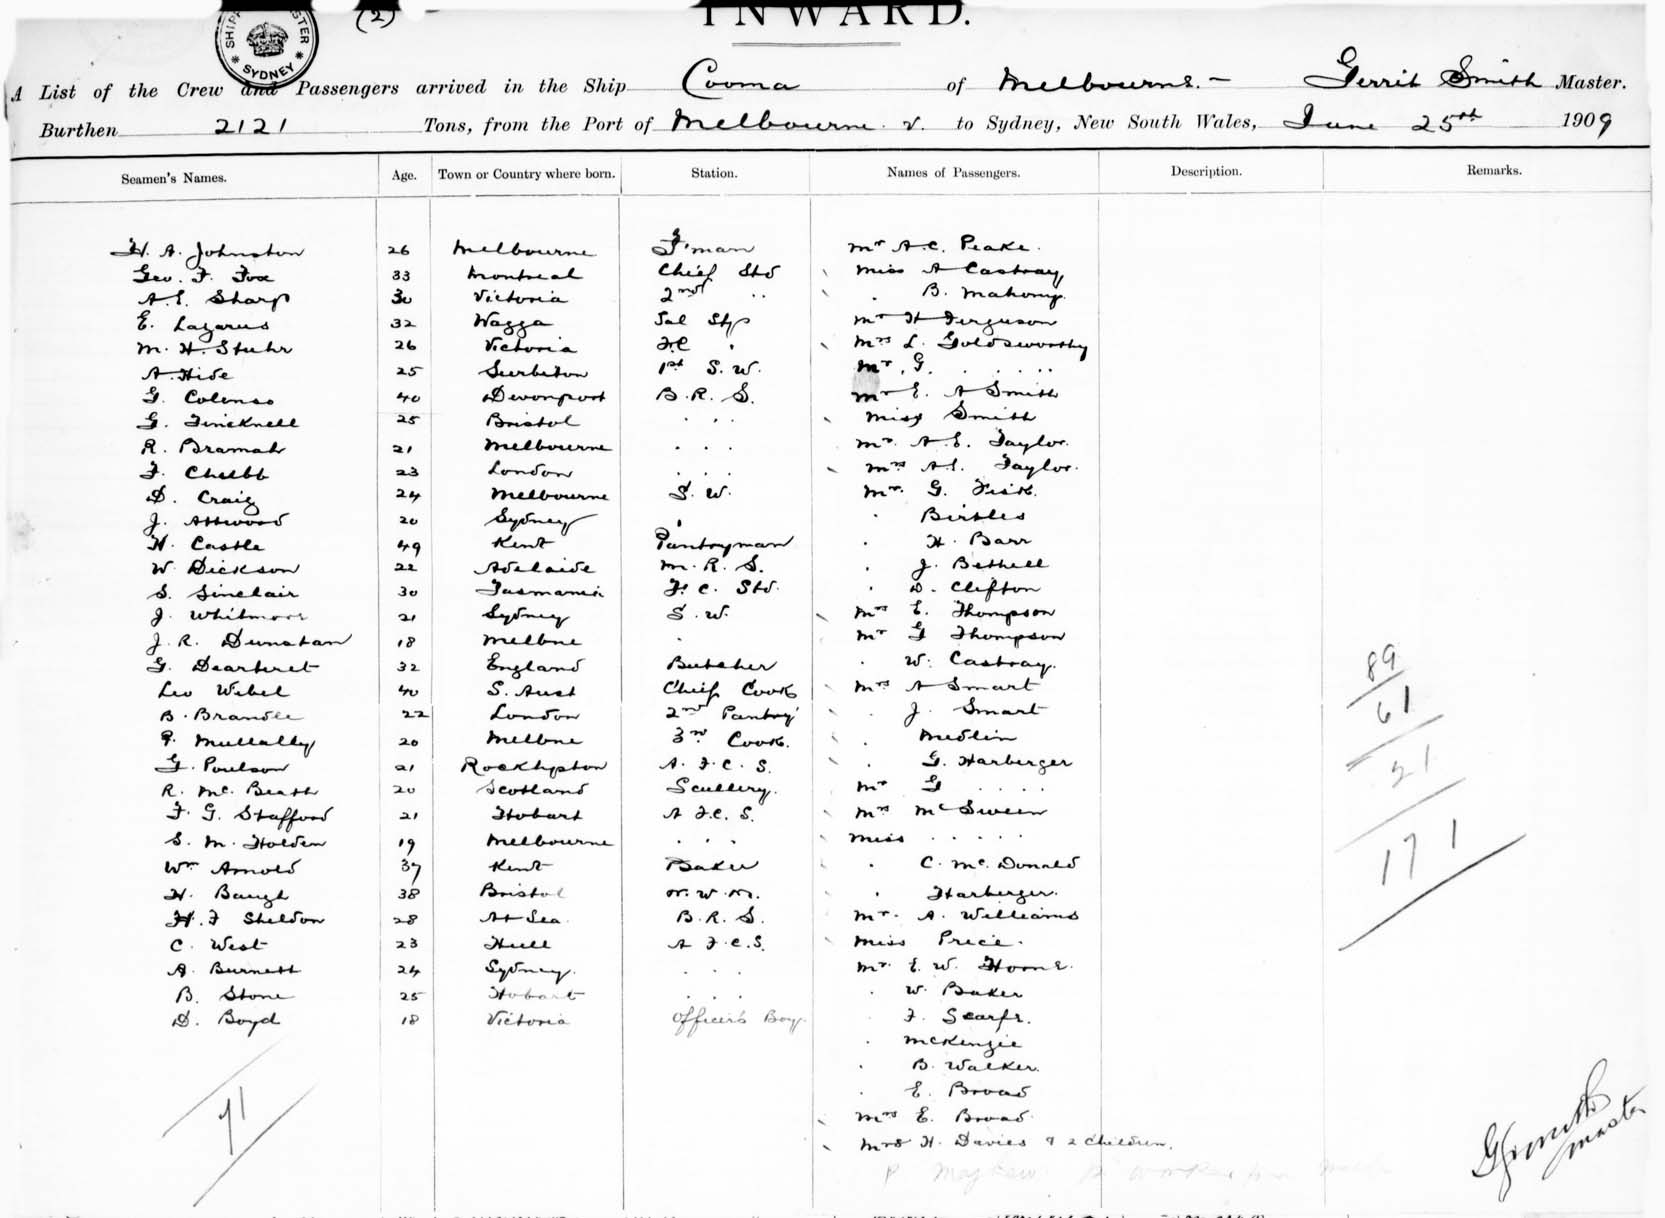 (2)
INWARD.
SHIPP STER SYDNEY
A List of the Crew and Passengers arrived in the Ship Cooma of Melbourne. - Gerrit Smith Master.
Burthen 2121 Tons, from the Port of Melbourne V. to Sydney, New South Wales, June 25th 1909
Seamen's Names. Age. Town or Country where born. Station. Names of Passengers. Description. Remarks.
H. A. Johnston 26 Melbourne F'man Mr A.C. Peake.
Geo. F. Fox 33 Montreal Chief Std Miss A Castray
A.E. Sharp 30 Victoria 2nd .. . B. Mahony.
E. Lazarus 32 Wagga Sal Stp Mr H Ferguson
M. H. Stuhr 26 Victoria F.C . Mrs L. Goldsworthy
A. Hide 25 Surbiton 1st S.W. Mr. G. . . . . .
G. Colenso 40 Devonport B.R.S. Mr E. A Smith
G. Fincknell 25 Bristol . . . Miss Smith
R. Bramah 21 Melbourne . . . Mr. A.E. Taylor.
F. Chubb 23 London . . . Mrs A.E. Taylor.
D. Craig 24 Melbourne S.W. Mr. G. Fisk.
J. Attwood 20 Sydney . . Birtles
H. Castle 49 Kent Pantryman . H. Barr
W. Dickson 22 Adelaide M.R.S. . J. Bethell
S. Sinclair 30 Tasmania F.C. Std. . D. Clifton
J. Whitmore 21 Sydney S.W. Mrs E. Thompson
J. R. Dunstan 18 Melbne . Mr G Thompson
G. 32 England Butcher . W. Castray.
Leo Webel 40 S. Aust Chief Cook Mrs A Smart
B. Brandle 22 London 2nd Pantry . J. Smart
P. Mullally 20 Melbne 3rd Cook. . Medlin
G. Poulson 21 Rockhpton A.F.C.S. . G. Harberger
R. McBeath 20 Scotland Scullery. Mr G . . . . .
F. G. Stafford 21 Hobart A F.C.S. Mrs McSween
S. M. Holden 19 Melbourne . . . Miss . . . . .
Wm Arnold 37 Kent Baker . C. McDonald
H. Baugh 38 Bristol N.W.M. . Harberger.
H. F Sheldon 28 At Sea. B.R.S. Mr. A. Williams
C. West 23 Hull A F.C.S. Miss Price.
A. Burnett 24 Sydney. . . . Mr. E. W. Hoone.
B. Stone 25 Hobart . . . . W. Baker
D. Boyd 18 Victoria Officers Boy. . F. Scarfe.
. McKenzie
. B. Walker.
. E. Broad
Mrs E. Broad.
Mrs H. Davies & 2 Children.
P Mayhew
71
89
61
21
171
G Smith
Master